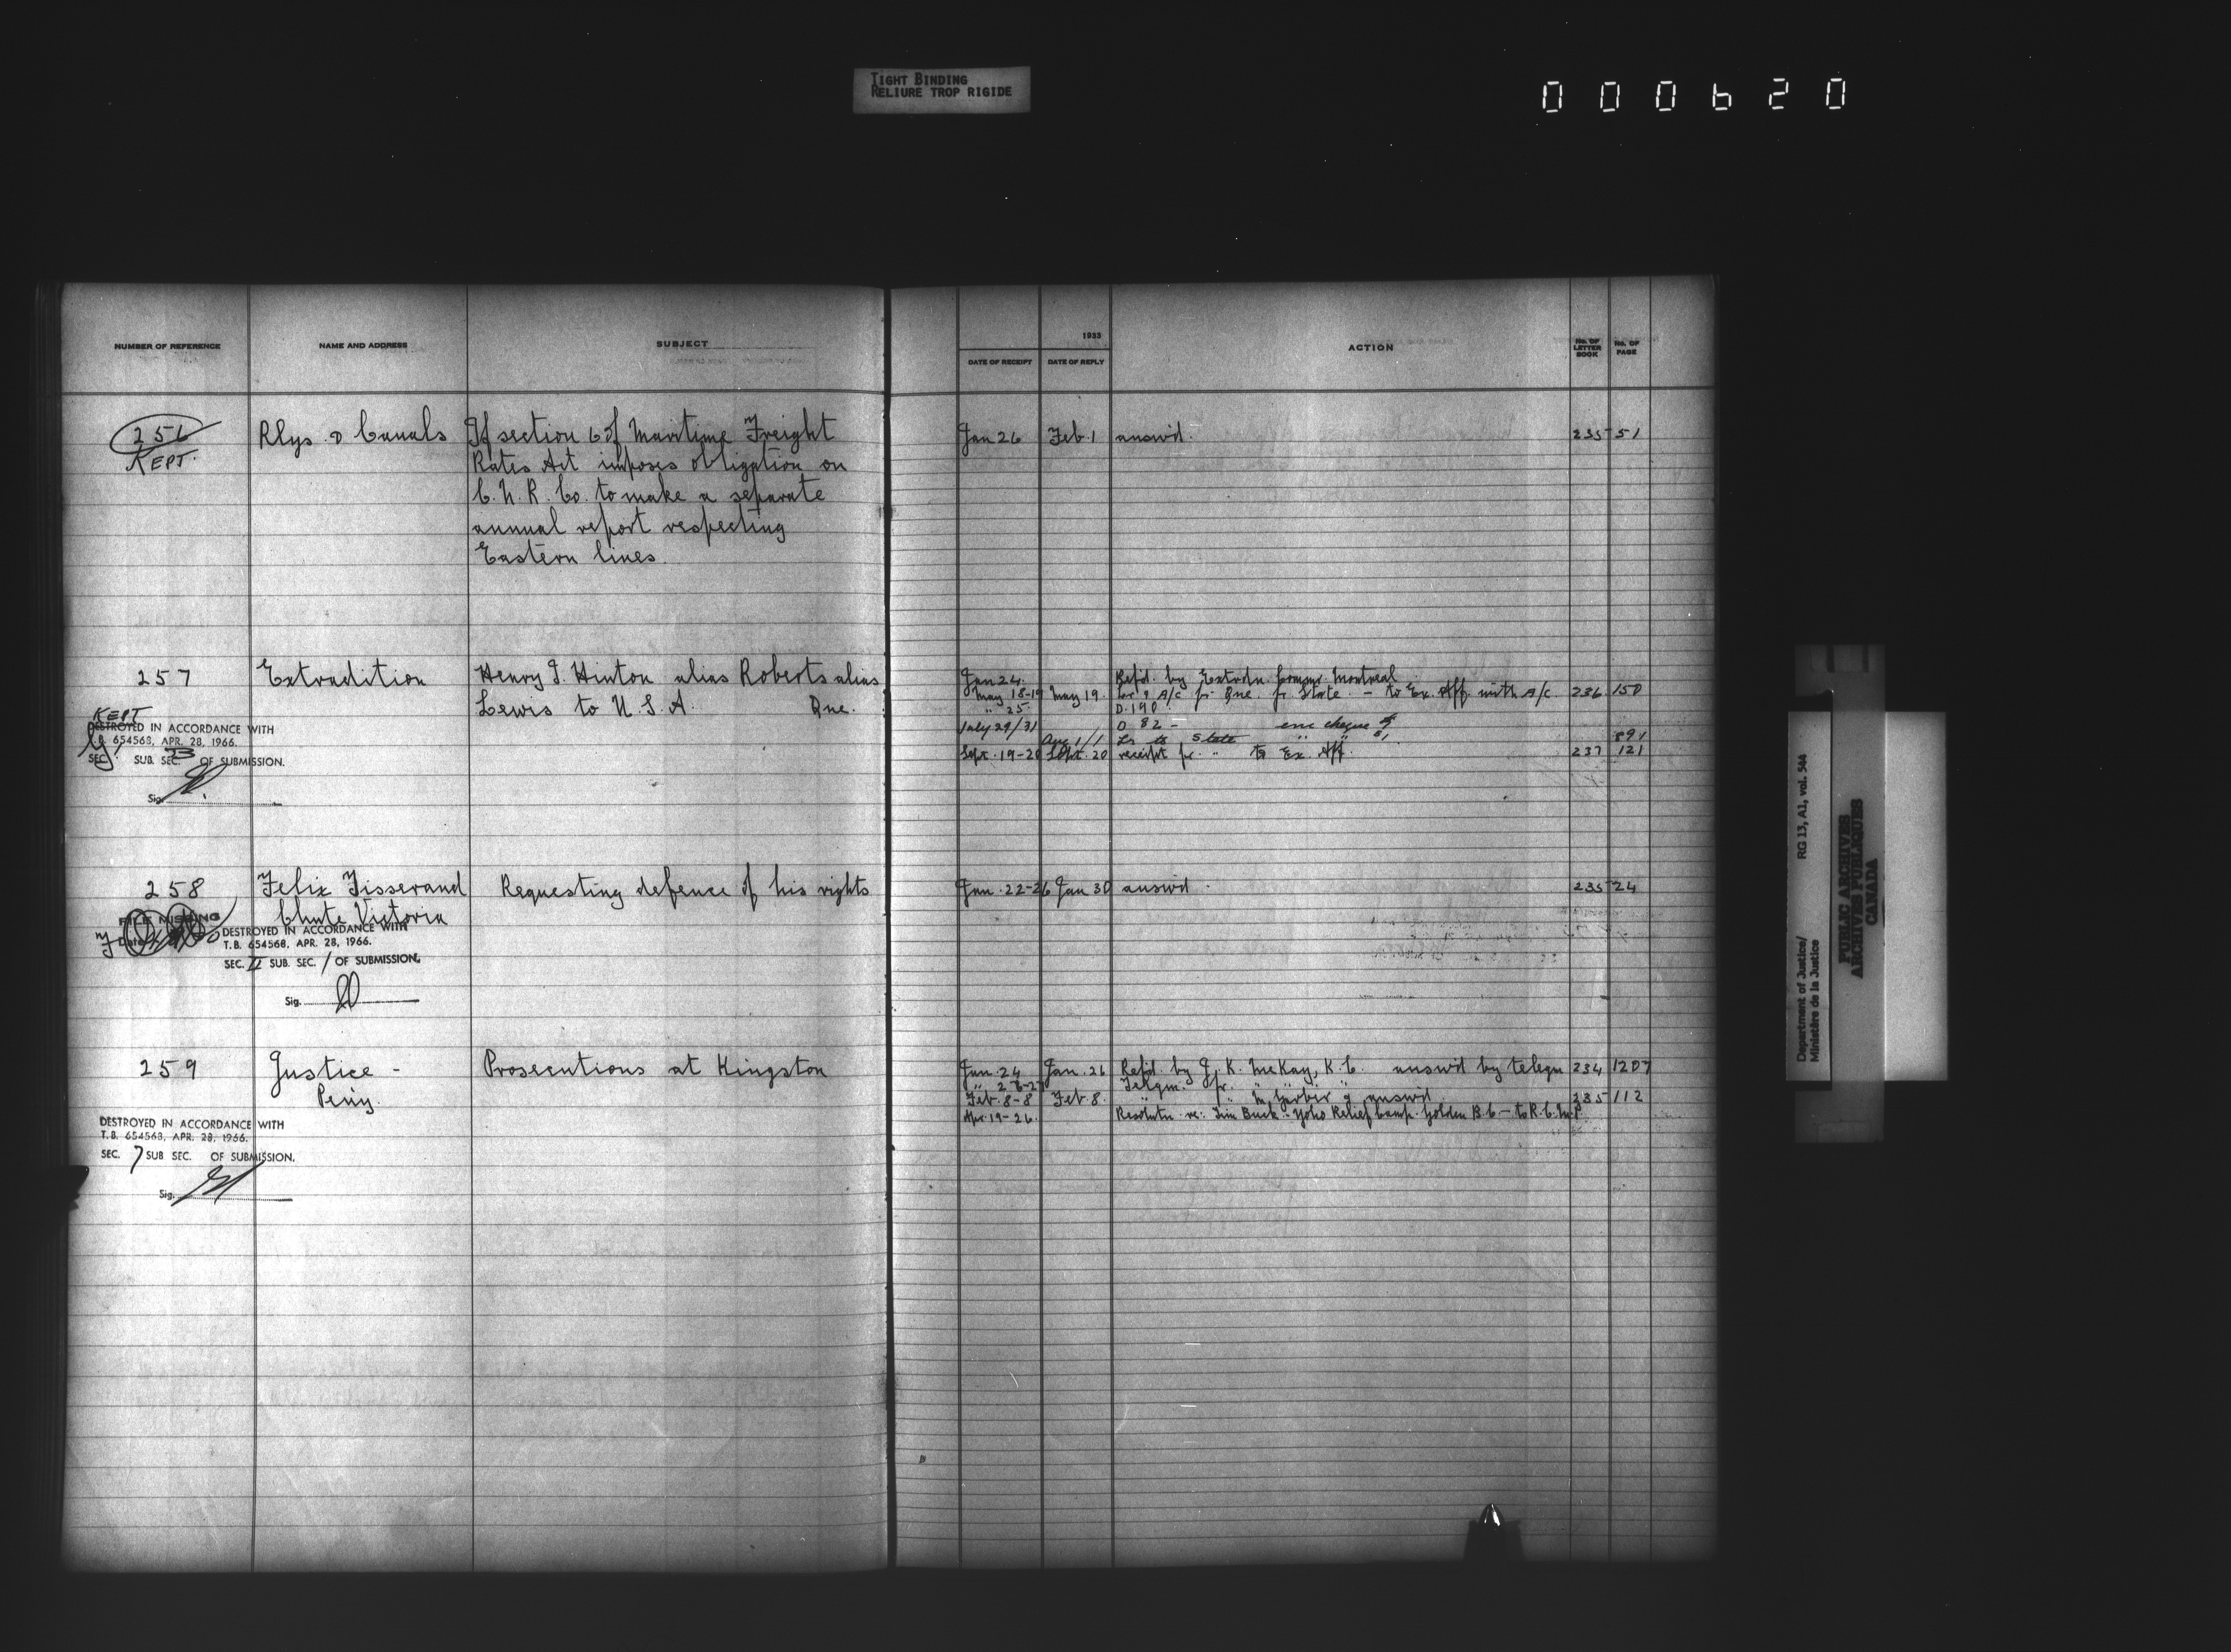 TIGHT BINDING
RELIURE TROP RIGIDE
000620
NUMBER OF REFERENCE
NAME AND ADDRESS
SUBJECT
1933
DATE OF RECEIPT
DATE OF REPLY
ACTION
No. OF LETTER BOOK
No. OF PAGE
256
KEPT.
Rlys. & Canals
If section 6 of Maritime Freight
Rates Act imposes obligation on
C.N.R. Co. to make a separate
annual report respecting
Eastern lines.
Jan 26 Feb. 1 answd. 235 51
257
Extradition
Henry J. Hinton alias Roberts alias
Lewis to U.S.A. Que.
KEPT
DESTROYED IN ACCORDANCE WITH
T.B. 654568, APR. 28, 1966.
SEC. SUB. SEC. OF SUBMISSION.
Sig.
Jan 24. Refd. by Extrdn. Commr Montreal
May 18-19 May 19. Lr & A/c fr. Que. fr. State. - to Ex. Aff. with A/c 236 150
" 25 D.190
July 29/31 D 82 - enc cheque
Aug 1/1 Lr to State " " 891
Sept. 19-20 Sept. 20 receipt fr. " to Ex. Aff. 237 121
258
Felix Tisserand
Chute Victoria
Requesting defence of his rights
FILE MISSING
Date
DESTROYED IN ACCORDANCE WITH
T.B. 654568, APR. 28, 1966.
SEC. II SUB. SEC. 1 OF SUBMISSION.
Sig.
Jan. 22-26 Jan 30 answd. 235 24
259
Justice -
Peniy.
Prosecutions at Kingston
DESTROYED IN ACCORDANCE WITH
T.B. 654568, APR. 28, 1966.
SEC. 7 SUB SEC. OF SUBMISSION.
Sig.
Jan. 24 Jan. 26 Refd. by J. K. McKay, K.C. answd by telegm 234 1207
" 26-27 Telgm. fr. "
Feb. 8-8 Feb. 8. answd. 235 112
Apr. 19-26. Resolutn re: Tim Buck - Yoho Relief Camp. Golden B.C. - to R.C.M.P.
Department of Justice/
Ministère de la Justice
RG 13, A1, vol. 544
PUBLIC ARCHIVES
ARCHIVES PUBLIQUES
CANADA